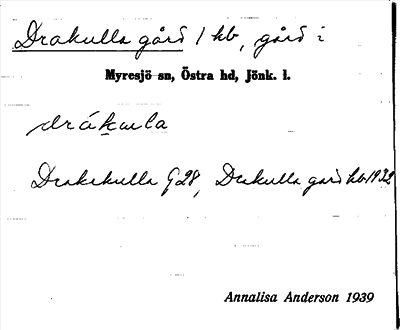 Drakulla gård 1 hb, gård i
Myresjö sn, Östra hd, Jönk. l.
drákula
Drakekulla G28, Drakulla gård hb 1932
Annalisa Anderson 1939